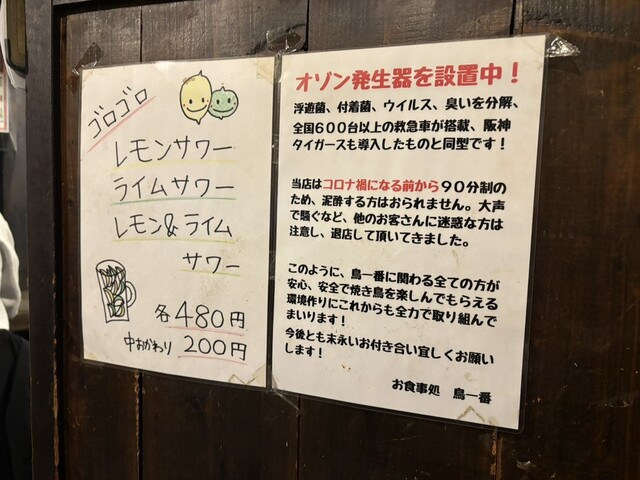 ゴロゴロ
レモンサワー
ライムサワー
レモン&ライム
サワー
各480円
中おかわり 200円
オゾン発生器を設置中！
浮遊菌、付着菌、ウイルス、臭いを分解、
全国600台以上の救急車が搭載、阪神
タイガースも導入したものと同型です！
当店はコロナ禍になる前から90分制の
ため、泥酔する方はおられません。大声
で騒ぐなど、他のお客さんに迷惑な方は
注意し、退店して頂いてきました。
このように、鳥一番に関わる全ての方が
安心、安全で焼き鳥を楽しんでもらえる
環境作りにこれからも全力で取り組んで
まいります！
今後とも末永いお付き合い宜しくお願い
します！
お食事処 鳥一番